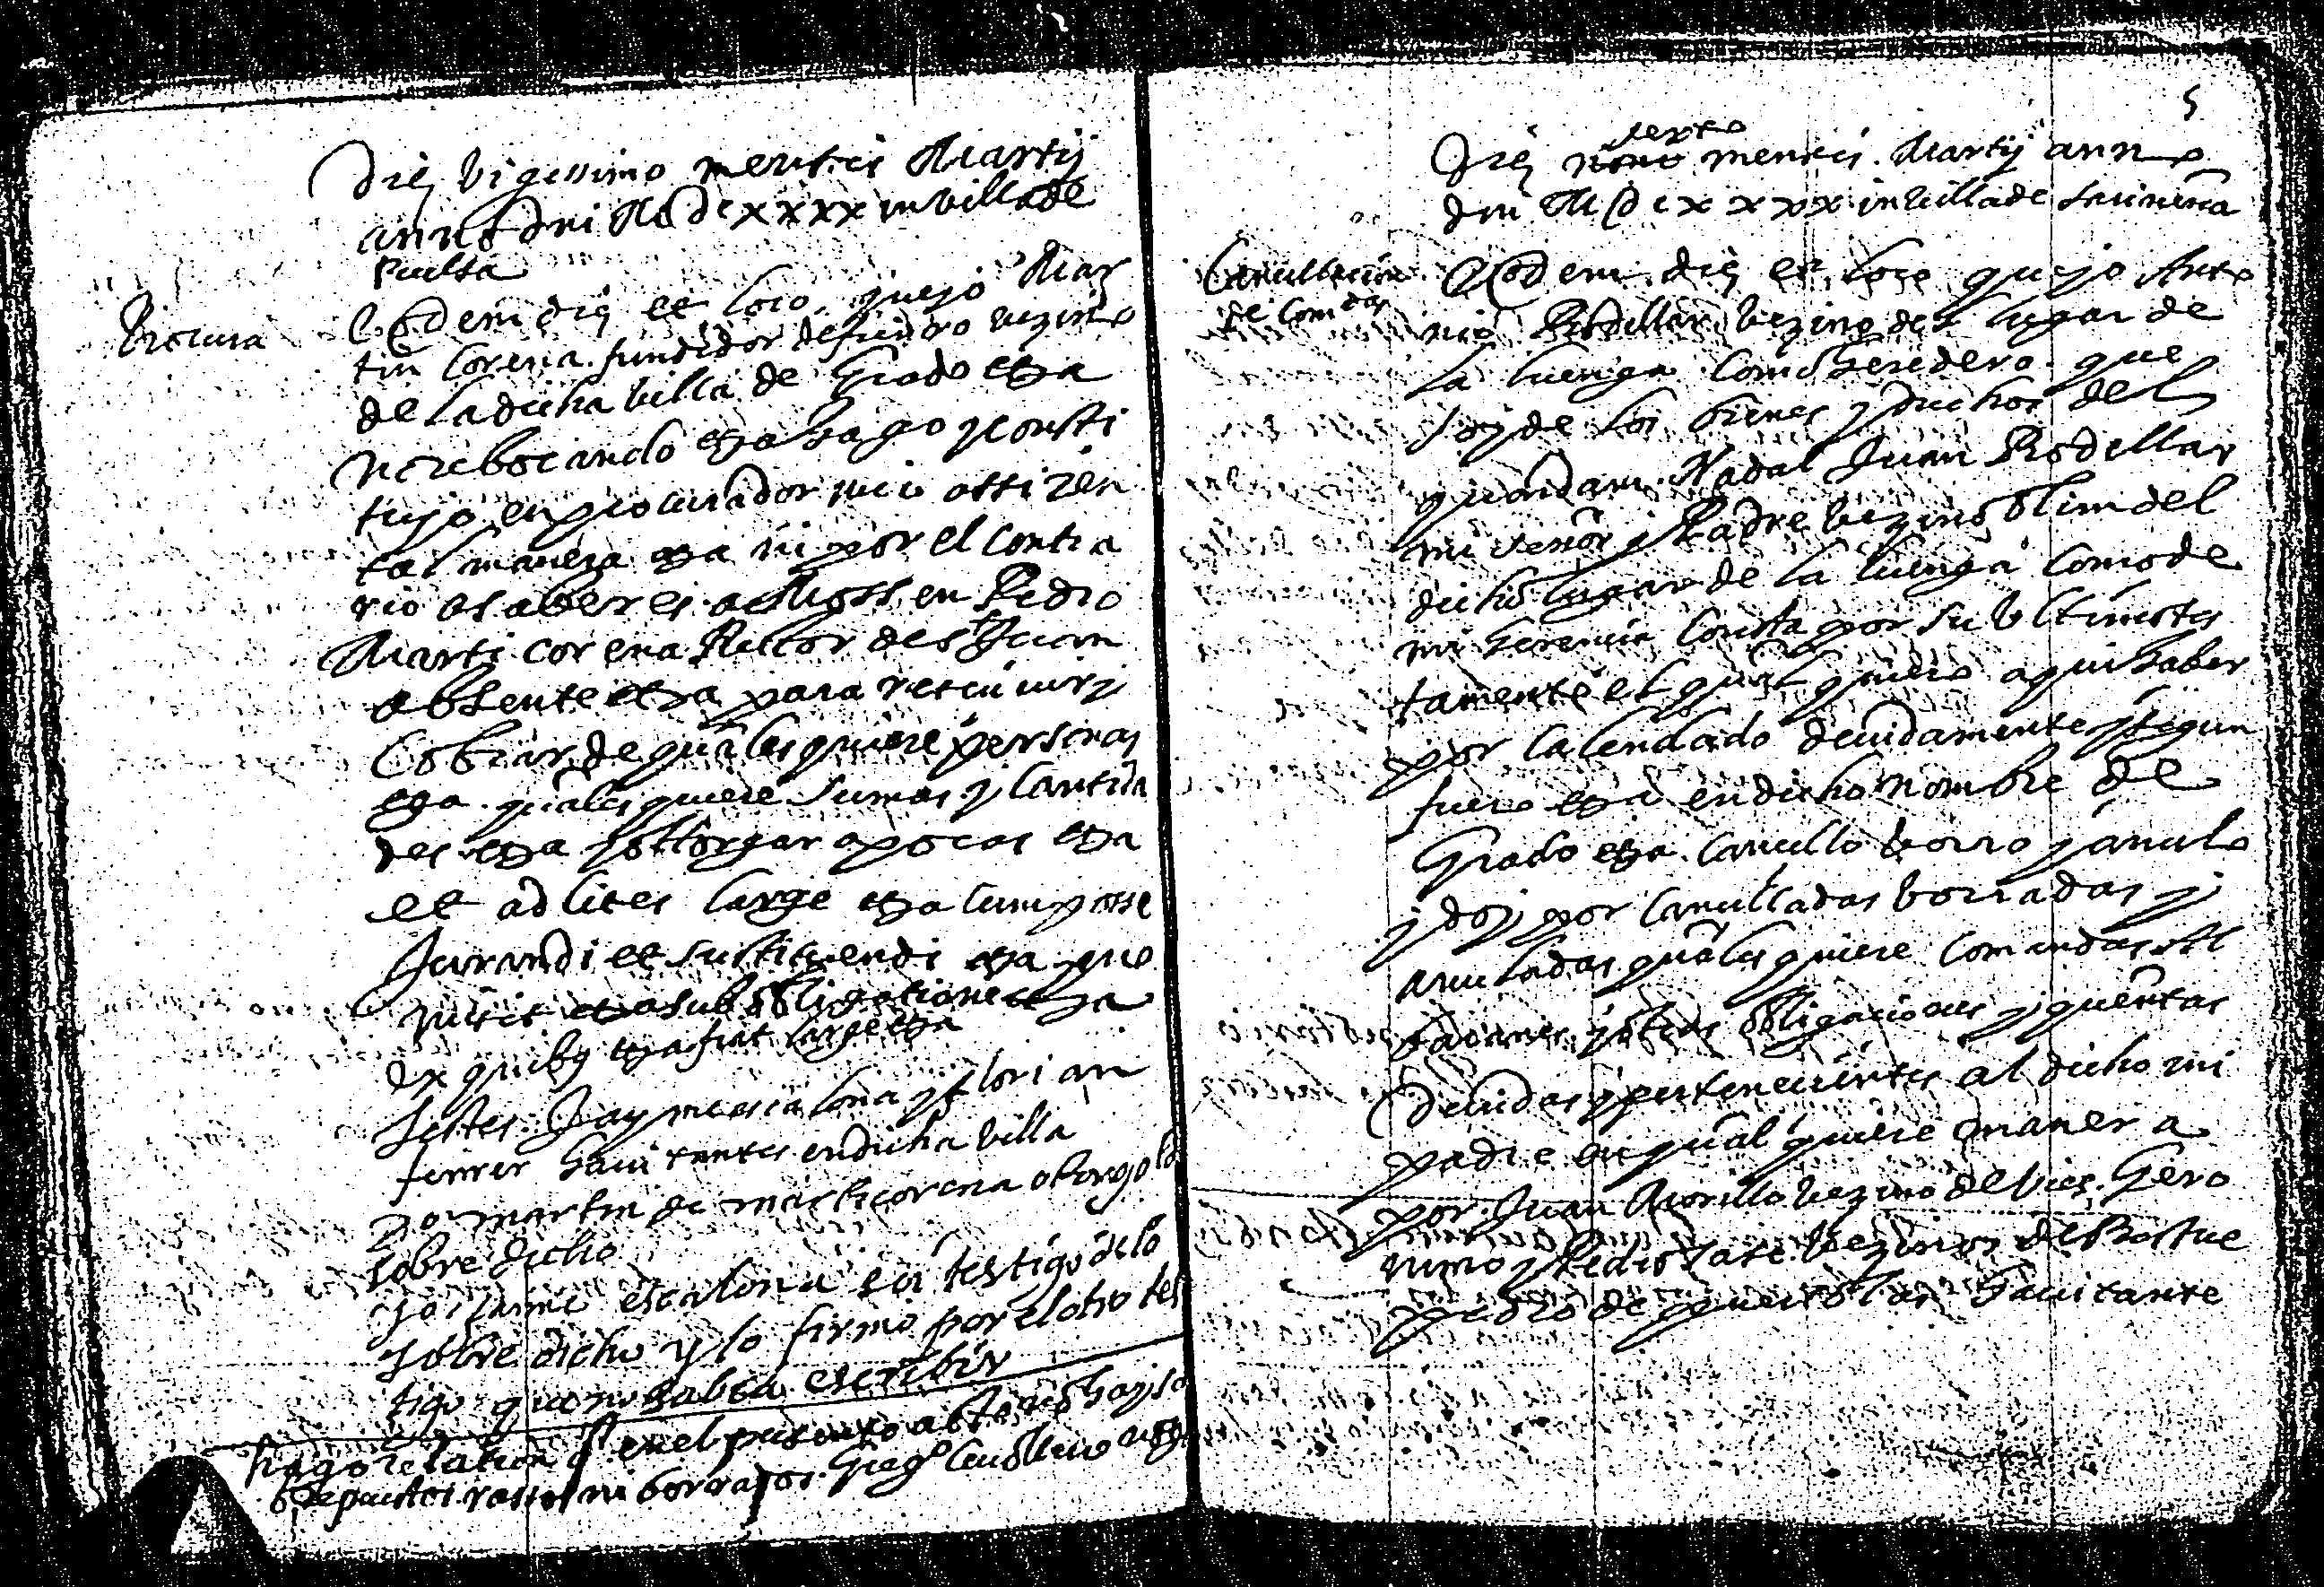 Die vigessimo mensis Martij
anno Dni MDcxxxx in villa de
Procura
Eodem die et loco que yo Mar
tin Corena fundidor de fierro vezino
de la dicha villa de Grado etza
no rebocando etza hago y consti
tuyo en procurador mio assi y en
tal manera etza ni por el contra
rio a saber es a Mossen Pedro
Marti corena Rector de st Juan
absente etza para rescivir y
Cobrar de quales quiere personas
etza quales quiere sumas y cantida
des etza y ottorgar apocas etza
et ad lites large etza cum posse
Jurandi et sustituendi etza pro
misit etza sub obligatione etza
ex quibus etza fiat large etza
Testes Jayme escalona y florian
ferrer havitantes en dicha villa
yo martin de marticorena otorgo lo
sobre dicho
yo jaime escalona soi testigo de lo
sobre dicho y lo firmo por el otro tes
tigo que no sabia escribir
hago relation q en el presente acto no hay so
brepuestos rassos ni borrados
5
sexto
Die nono mensis Martij anno
dni MDcxxxx in villa de
Cancellacion
de comdas
Eodem die et loco que yo Anto
nio Rodellar vezino del lugar de
la luenga como heredero que
soy de los bienes y drechos del
quondam Nadal Juan Rodellar
mi señor y Padre vezino olim del
dicho lugar de la luenga como de
mi herencia consta por su ultimo tes
tamento el qual quiero aqui haber
por calendado devidamente y segun
fuero etza en dicho nombre de
Grado etza cancello borro y anulo
y doy por cancelladas borradas y
anuladas quales quiere comandas
y otras obligaciones y quentas
devidas y pertenecientes al dicho mi
padre en qual quiere manera
por Juan Morillo vezino de Gero
nimo y Pedro vezinos de
pedro de havitante